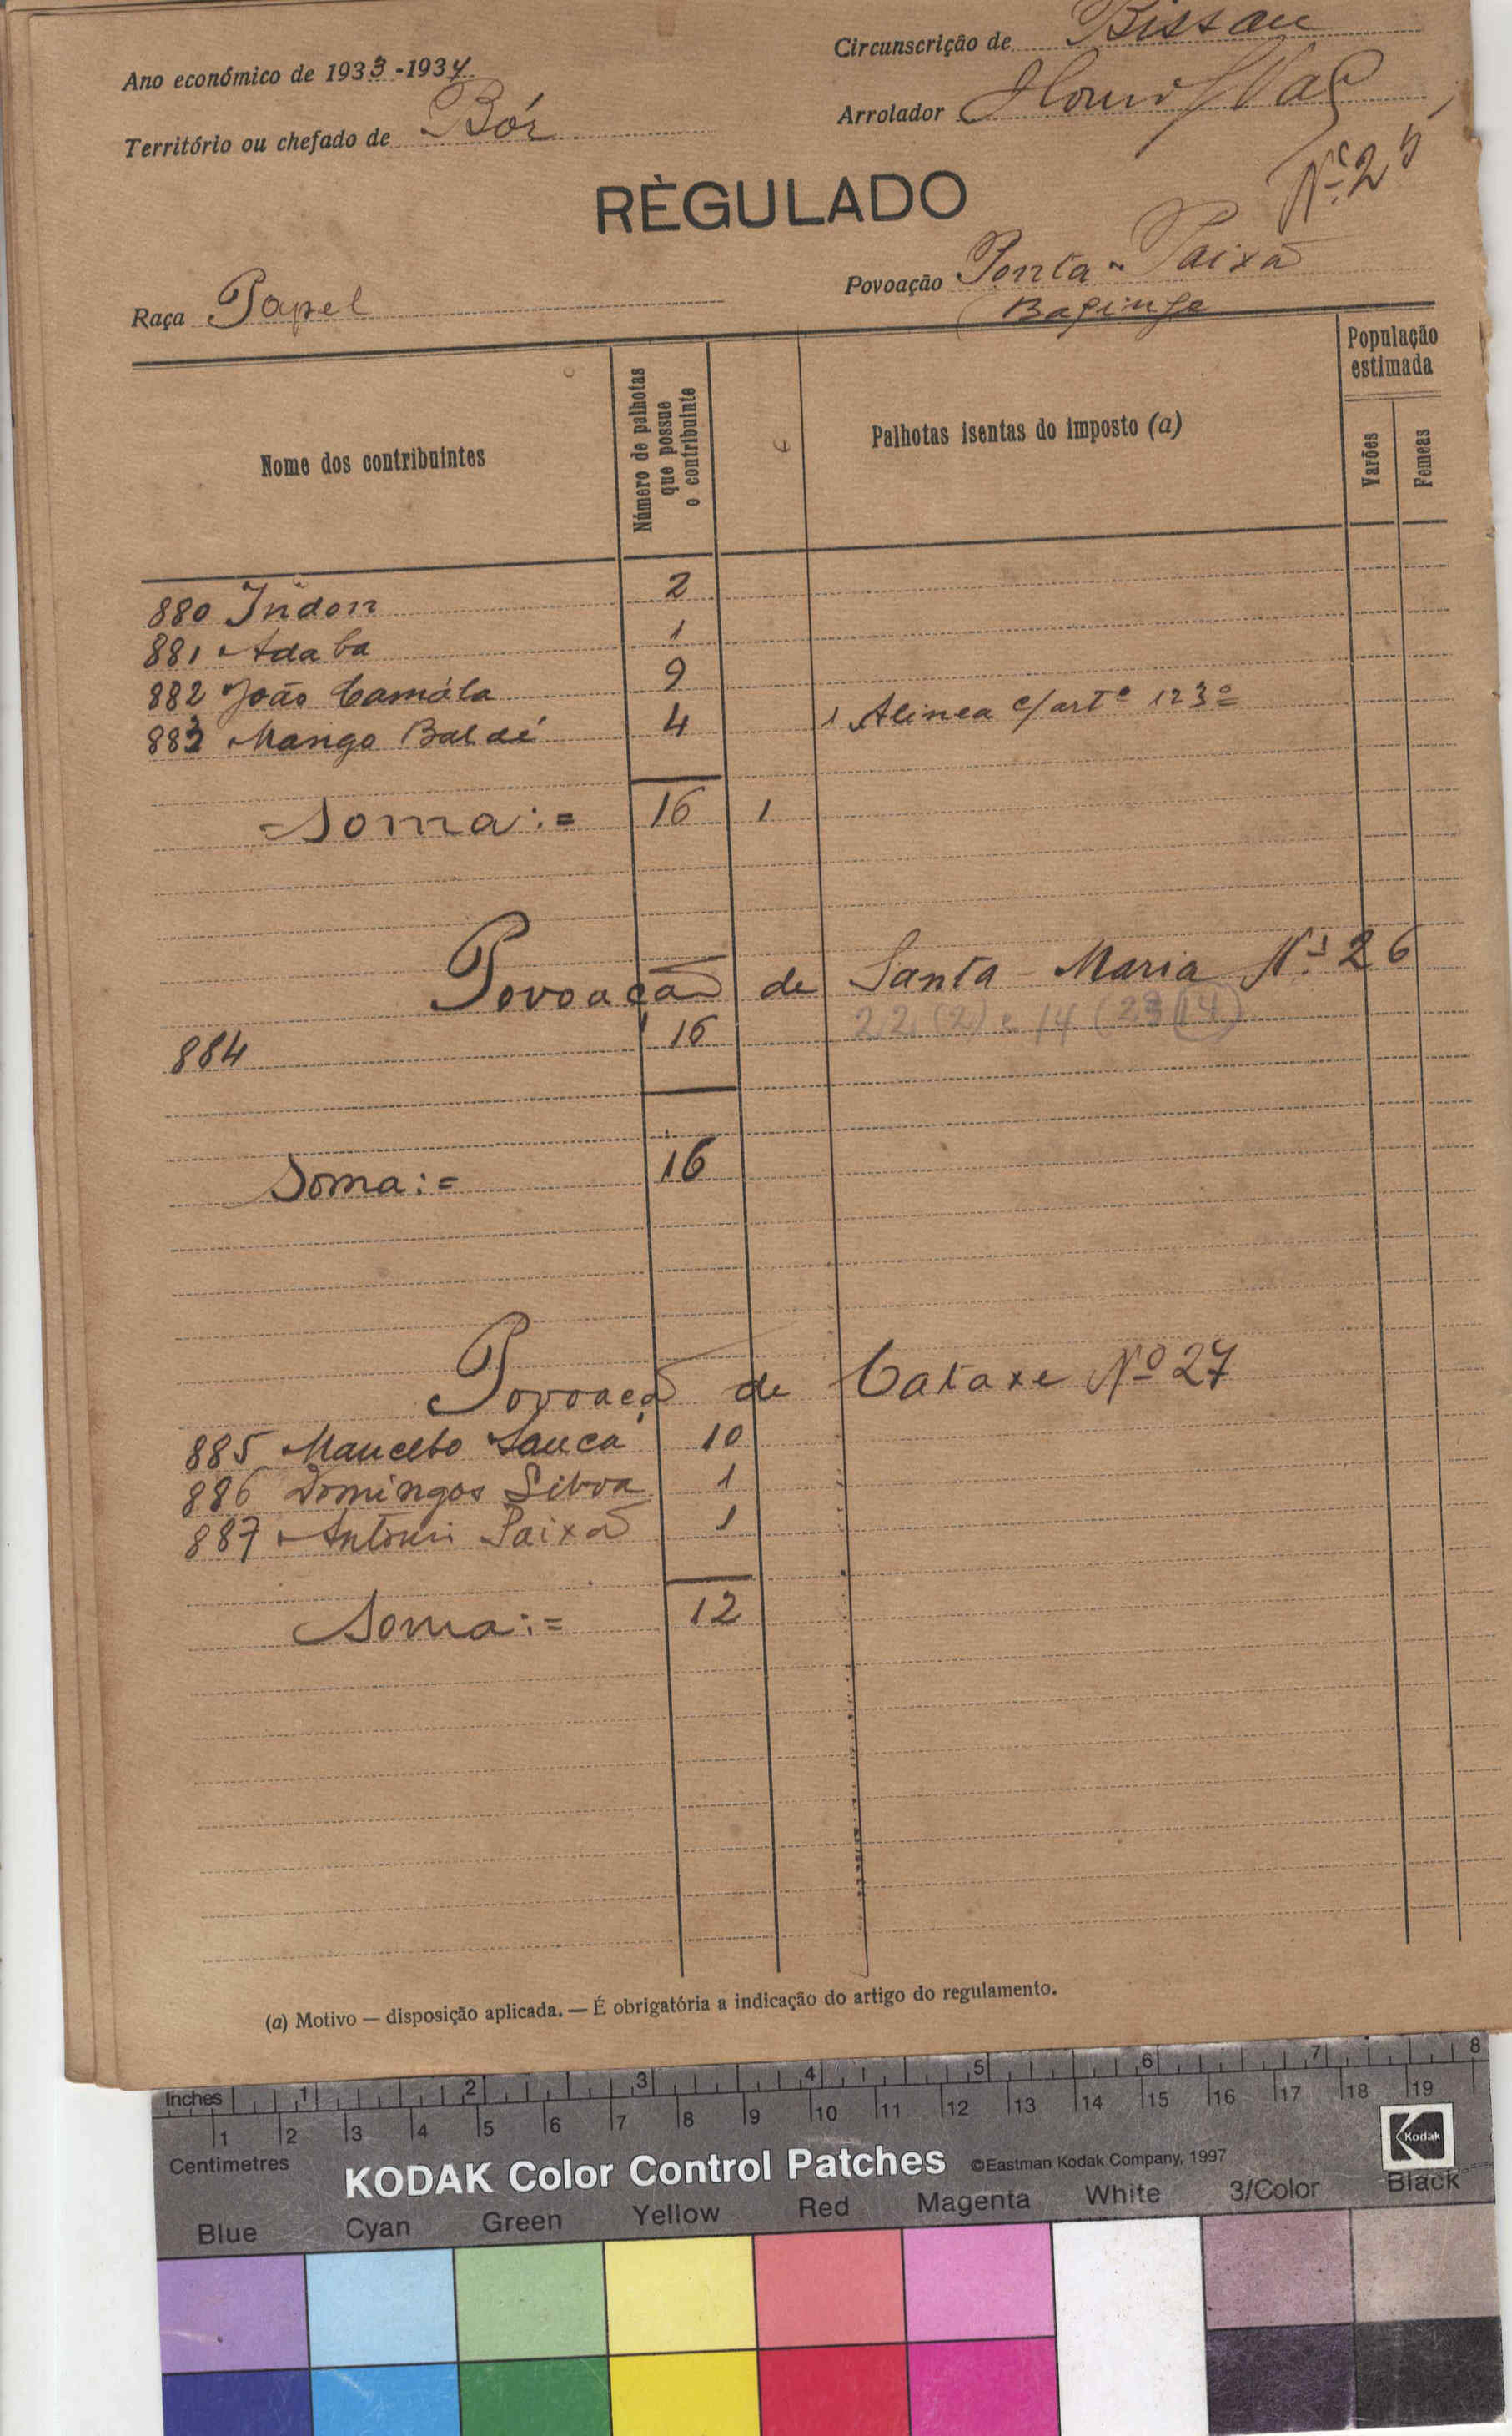 Ano económico de 1933-1934
Circunscrição de Bissau
Território ou chefado de Bór
Arrolador
RÈGULADO
Nº 25
Raça Papel
Povoação Ponta - Paixão
Nome dos contribuintes
Número de palhotas que possue o contribuinte
Palhotas isentas do imposto (a)
População estimada
Varões
Femeas
880 Indon 2
881 Adaba 1
882 João Camála 9
883 Mango Baldé 4 1 Alinea c/artº 123º
Soma:= 16 1
Povoação de Santa - Maria Nº 26
884 16 22 (2) e 14 (23 (14)
Soma:= 16
Povoação de Cataxe Nº 27
885 Mancebo Sancá 10
886 Domingos Silva 1
887 António Paixão 1
Soma:= 12
(a) Motivo — disposição aplicada. — É obrigatória a indicação do artigo do regulamento.
Inches 1 2 3 4 5 6 7 8
Centimetres 1 2 3 4 5 6 7 8 9 10 11 12 13 14 15 16 17 18 19
KODAK Color Control Patches ©Eastman Kodak Company, 1997 Kodak
Blue Cyan Green Yellow Red Magenta White 3/Color Black